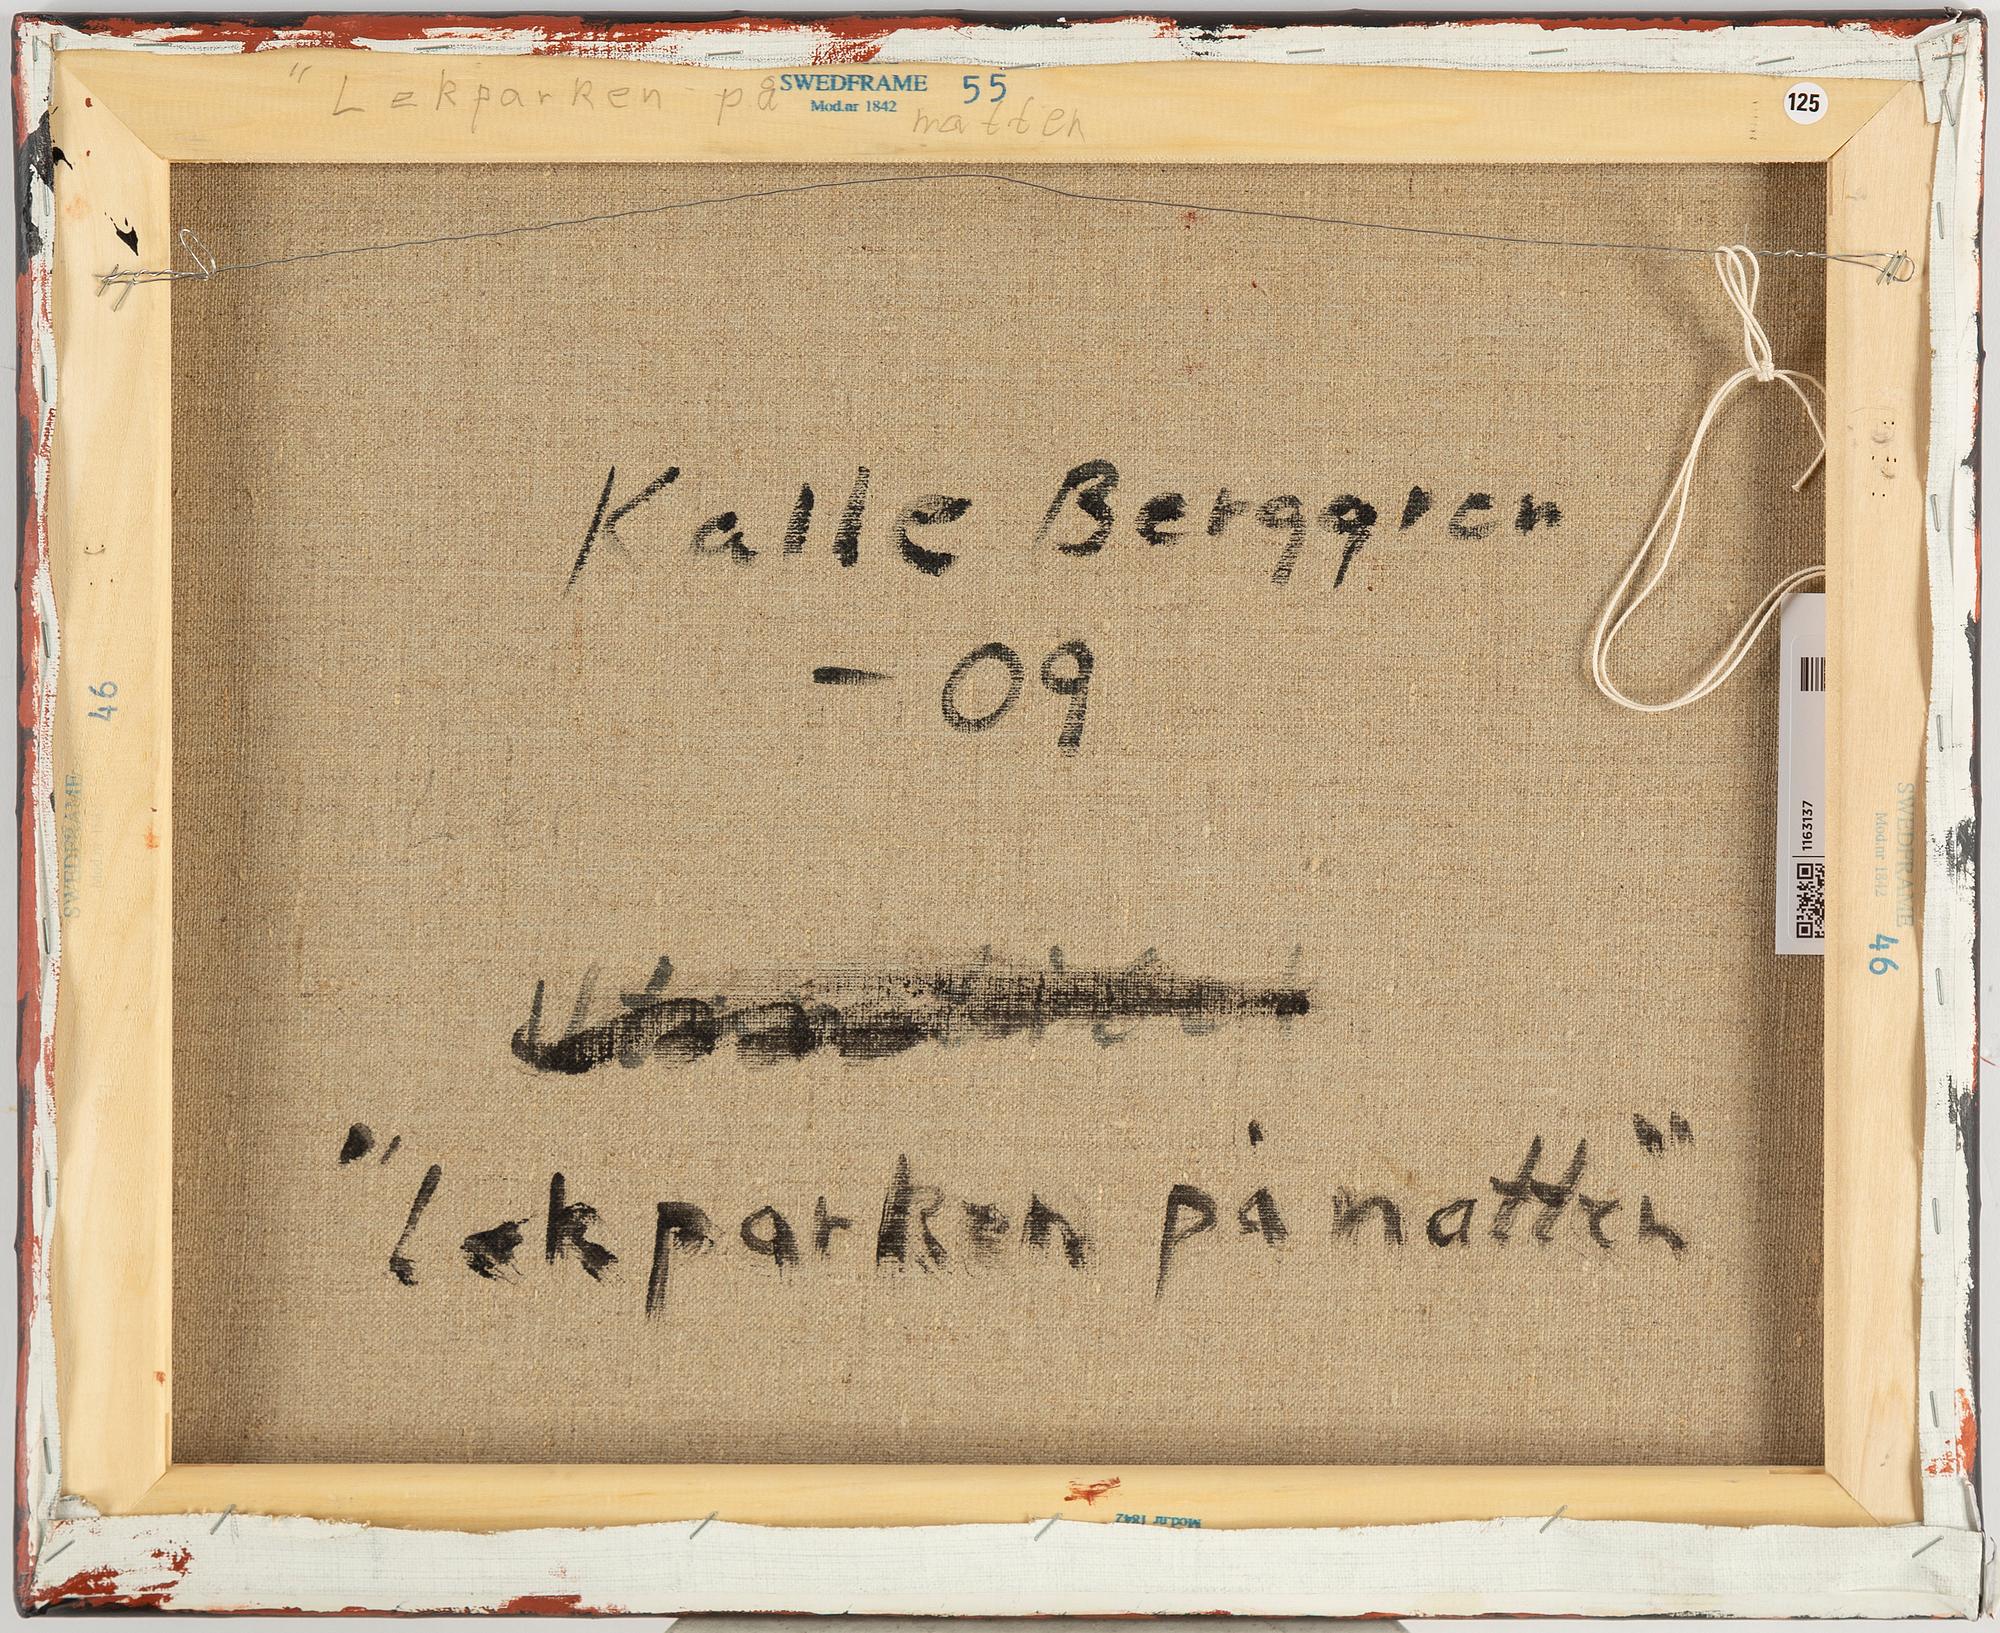 "Lekparken på
natten
SWEDFRAME 55
Mod.nr 1842
125
Kalle Berggren
-09
"Lekparken på natten"
46
SWEDFRAME
1163137
SWEDFRAME
Mod.nr 1842
46
Mod.nr 1842